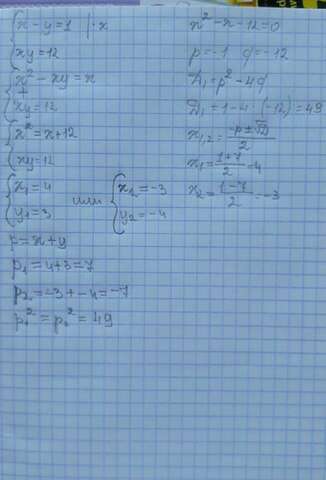 x - y = 1 | ·x
xy = 12
x² - xy = x
+
xy = 12
x² = x + 12
xy = 12
x₁ = 4 или x₂ = -3
y₁ = 3 y₂ = -4
p = x + y
p₁ = 4 + 3 = 7
p₂ = -3 + -4 = -7
p₁² = p₂² = 49
x² - x - 12 = 0
p = -1 q = -12
D₁ = p² - 4q
D₁ = 1 - 4 · (-12) = 49
x₁,₂ = (-p ± √D)/2
x₁ = (1 + 7)/2 = 4
x₂ = (1 - 7)/2 = -3